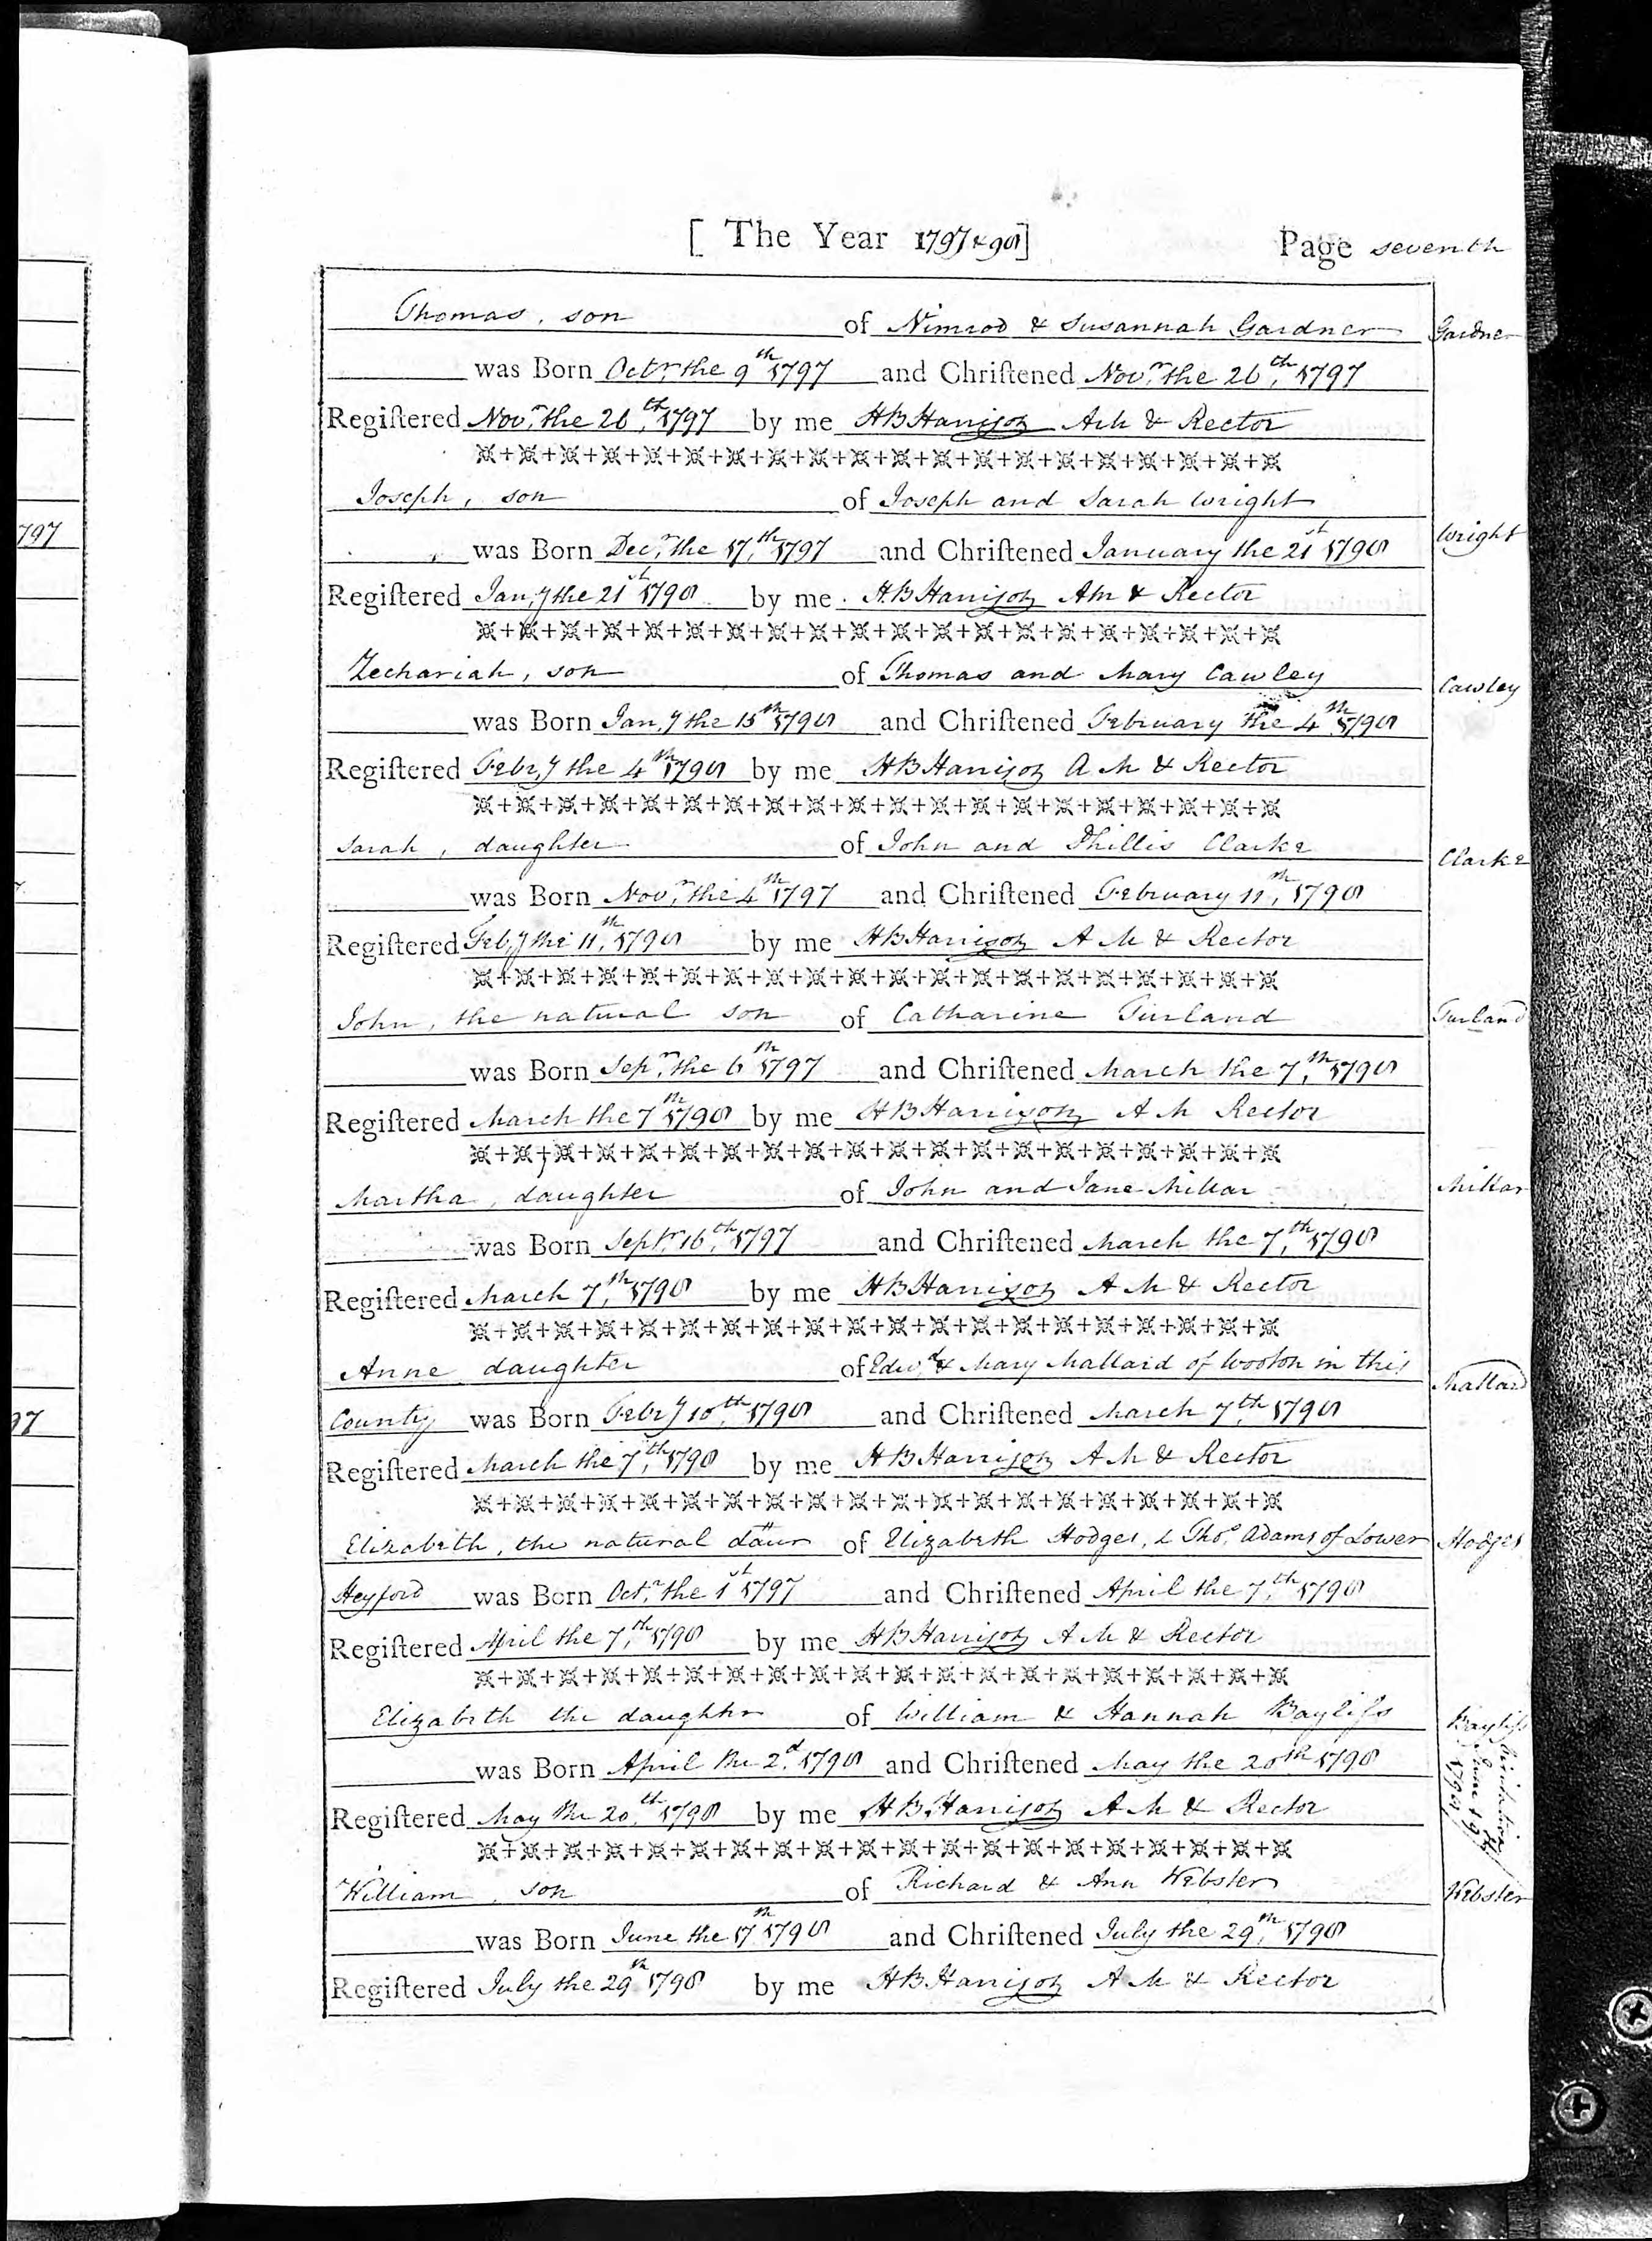 [ The Year 1797 & 98 ]
Page seventh
Thomas, son of Nimrod & Susannah Gardner
Gardner
was Born Octr. the 9th 1797 and Chriſtened Novr. the 26th, 1797
Regiſtered Novr. the 26th, 1797 by me HB Harrison AM & Rector
Joseph, son of Joseph and Sarah Wright
Wright
was Born Decr. the 17th, 1797 and Chriſtened January the 21st 1798
Regiſtered Jany. the 21st 1798 by me HB Harrison AM & Rector
Zechariah, son of Thomas and Mary Cawley
Cawley
was Born Jany. the 15th 1798 and Chriſtened February the 4th 1798
Regiſtered Febry. the 4th 1798 by me HB Harrison AM & Rector
Sarah, daughter of John and Phillis Clarke
Clarke
was Born Novr. the 4th 1797 and Chriſtened February 11th, 1798
Regiſtered Feby. the 11th, 1798 by me HB Harrison AM & Rector
John, the natural son of Catharine Turland
Turland
was Born Sepr. the 6th 1797 and Chriſtened March the 7th, 1798
Regiſtered March the 7th 1798 by me HB Harrison AM Rector
Martha, daughter of John and Jane Millar
Millar
was Born Septr. 16th, 1797 and Chriſtened March the 7th, 1798
Regiſtered March 7th, 1798 by me HB Harrison AM & Rector
Anne daughter of Edwd. & Mary Mallard of Wooton in this
Mallard
County was Born Febry 10th, 1798 and Chriſtened March 7th, 1798
Regiſtered March the 7th, 1798 by me HB Harrison AM & Rector
Elizabeth, the natural daur of Elizabeth Hodges, & Thos. Adams of Lower
Hodges
Heyford was Born Octr. the 1st 1797 and Chriſtened April the 7th, 1798
Regiſtered April the 7th, 1798 by me HB Harrison AM & Rector
Elizabeth the daughter of William & Hannah Baylifs
Baylifs
was Born April the 2d. 1798 and Chriſtened May the 20th 1798
June 19th
1798
Regiſtered May the 20th, 1798 by me HB Harrison AM & Rector
William, son of Richard & Ann Webster
Webster
was Born June the 17th 1798 and Chriſtened July the 29th, 1798
Regiſtered July the 29th 1798 by me HB Harrison AM & Rector
797
97